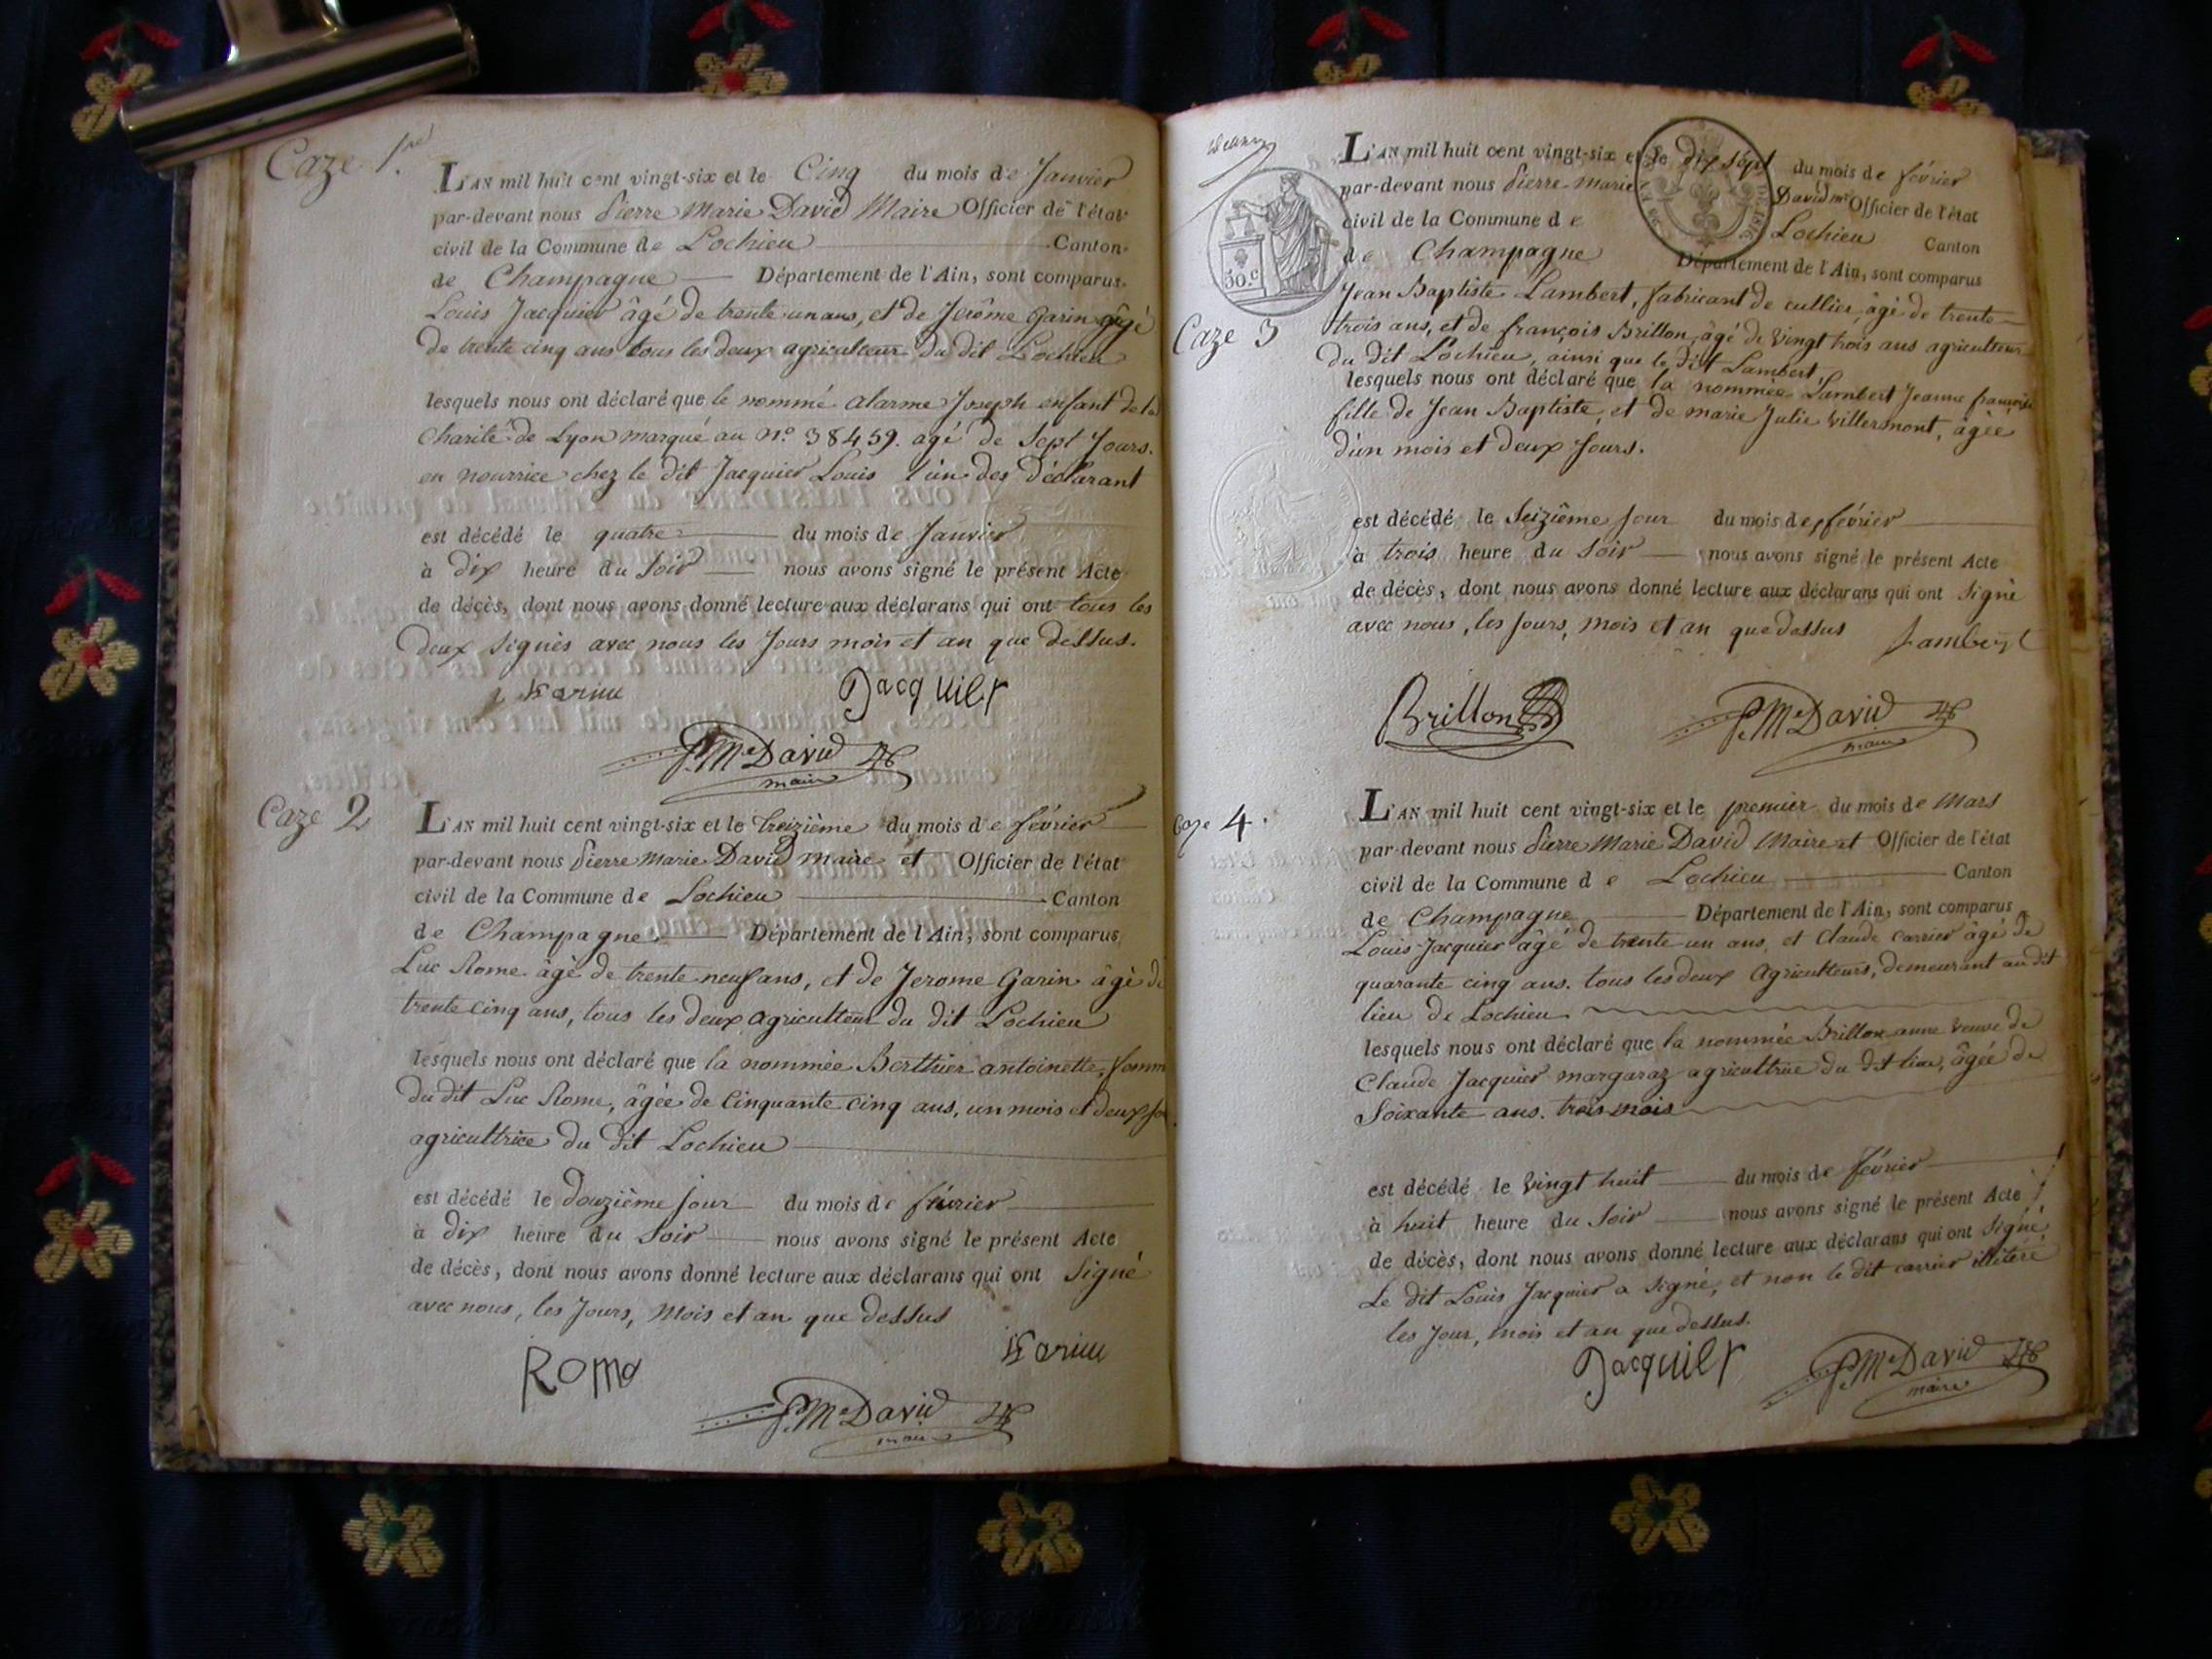 Caze 1.re
L'AN mil huit cent vingt-six et le Cinq du mois de Janvier
par-devant nous Pierre Marie David Maire Officier de l'état
civil de la Commune de Lochieu Canton
de Champagne Département de l'Ain, sont comparus
Louis Jacquier âgé de trente un ans, et de Jerôme Garin âgé
de trente cinq ans tous les deux agriculteur du dit Lochieu
lesquels nous ont déclaré que le nommé alarme Joseph enfant de la
Charité de Lyon marqué au N.o 38459. agé de Sept Jours.
en nourrice chez le dit Jacquier Louis l'un des déclarant
est décédé le quatre du mois de Janvier
à dix heure du Soir nous avons signé le présent Acte
de décès, dont nous avons donné lecture aux déclarans qui ont tous les
deux Signés avec nous les Jours mois et an que dessus.
Jacquier
P.Me David
maire
Caze 2
L'AN mil huit cent vingt-six et le treizième du mois de février
par-devant nous Pierre Marie David maire et Officier de l'état
civil de la Commune de Lochieu Canton
de Champagne Département de l'Ain, sont comparus
Luc Rome âgé de trente neuf ans, et de Jerome Garin âgé de
trente cinq ans, tous les deux agriculteur du dit Lochieu
lesquels nous ont déclaré que la nommée Berthier antoinette, femm
du dit Luc Rome, âgée de Cinquante cinq ans, un mois et deux jo
agricultrice du dit Lochieu
est décédé le douzième Jour du mois de février
à dix heure du Soir nous avons signé le présent Acte
de décès, dont nous avons donné lecture aux déclarans qui ont Signé
avec nous, les Jours, Mois et an que dessus
Roma
P.Me David
maire
L'AN mil huit cent vingt-six et le dix Sept du mois de février
par-devant nous Pierre marie David m.re Officier de l'état
civil de la Commune de Lochieu Canton
de Champagne Département de l'Ain, sont comparus
50.c
Caze 3
Jean Baptiste Lambert, fabricant de cullier, âgé de trente
trois ans, et de françois Brillon, âgé de vingt trois ans agriculteur
du dit Lochieu, ainsi que le dit Lambert,
lesquels nous ont déclaré que la nommée Lambert Jeanne françoise
fille de Jean Baptiste, et de marie Julie villermont, âgée
d'un mois et deux Jours.
est décédé le Seizième Jour du mois de février
à trois heure du Soir nous avons signé le présent Acte
de décès, dont nous avons donné lecture aux déclarans qui ont Signé
avec nous, les Jours, mois et an que dessus Lambert
Brillon
P.Me David
maire
Caze 4.
L'AN mil huit cent vingt-six et le premier du mois de Mars
par-devant nous Pierre Marie David Maire et Officier de l'état
civil de la Commune de Lochieu Canton
de Champagne Département de l'Ain, sont comparus
Louis Jacquier âgé de trente un ans, et Claude Carrier âgé de
quarante cinq ans. tous les deux Agriculteurs, demeurant au dit
lieu de Lochieu
lesquels nous ont déclaré que la nommée Brillon anne veuve de
Claude Jacquier margaraz agricultrice du dit lieu, âgée de
Soixante ans. trois mois
est décédé le vingt huit du mois de février
à huit heure du Soir nous avons signé le présent Acte
de décès, dont nous avons donné lecture aux déclarans qui ont Signé,
Le dit Louis Jacquier a signé, et non le dit carrier illitéré
les Jour, mois et an que dessus.
Jacquier
P.Me David
maire